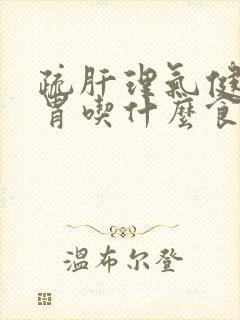 疏肝理氣健
胃喫什麼食
溫布尔登